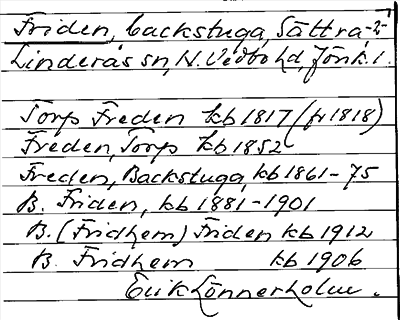 Friden, backstuga, Sättra-2-
Linderås sn, N. Vedbo hd, Jönk. l.
Torp Freden kb 1817 (fr 1818)
Freden, Torp kb 1852
Freden, Backstuga, kb 1861-75
B. Friden, kb 1881-1901
B. (Fridhem) Friden kb 1912
B. Fridhem kb 1906
Erik Lönnerholm.